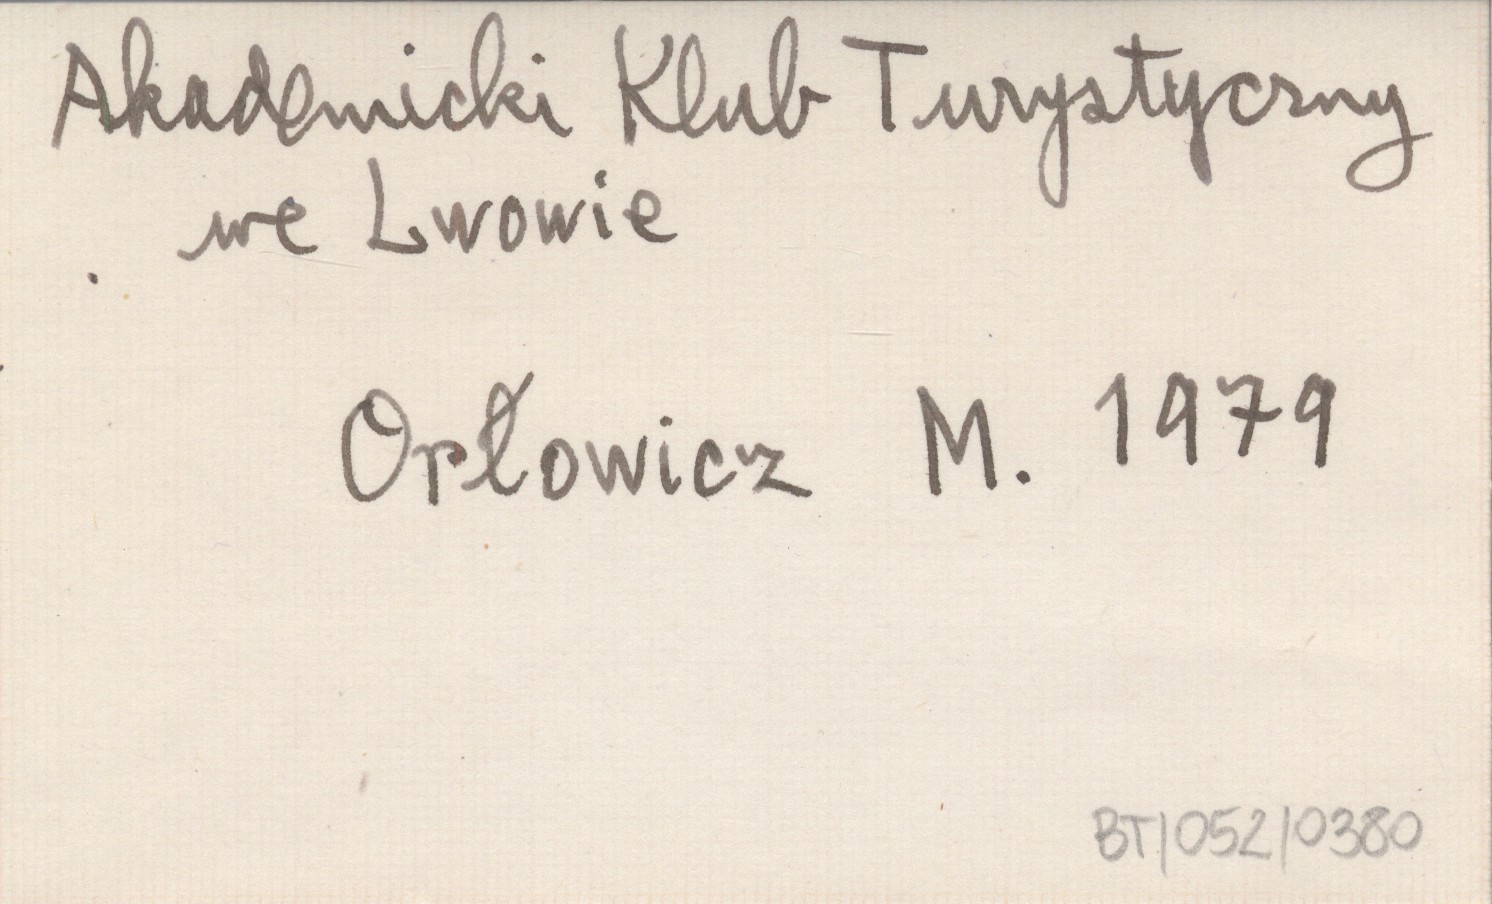 Akademicki Klub Turystyczny
we Lwowie
Orłowicz M. 1979
BT/052/0380